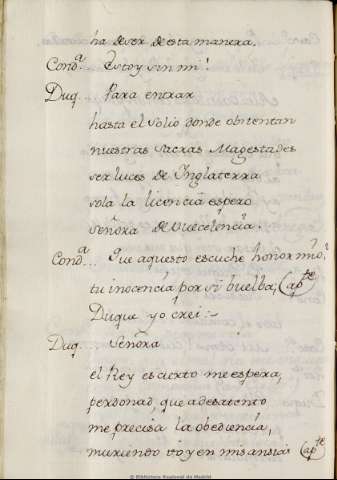 ha de ser de esta manera.
Cond.ª Estoy sin mi!
Duq... Para entrar
hasta el Solio donde obstentan
nuestras Sacras Magestades
ser luces de Inglaterra
sola la licencia espero
Señora de Vuecelencia.
Cond.ª... Que aquesto escuche honor mio!
tu inocencia por si buelba, (ap.te
Duque yo crei:~
Duq. Señora
el Rey es cierto me espera,
perdonad, que a desatento
me precisa la obediencia,
muriendo voy en mis ansias (ap.te
© Biblioteca Nacional de Madrid